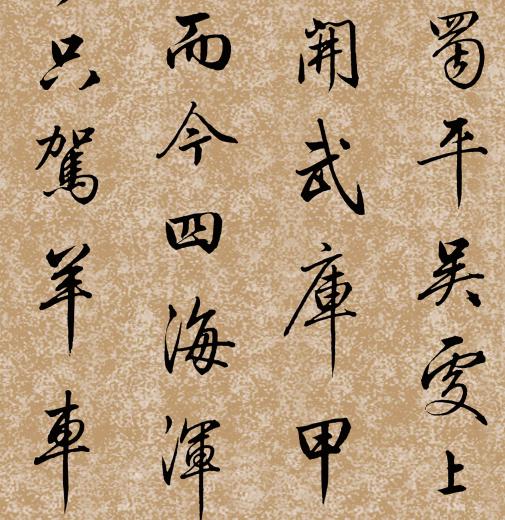 蜀平吳上
開武庫甲
而今四海渾
只駕羊車